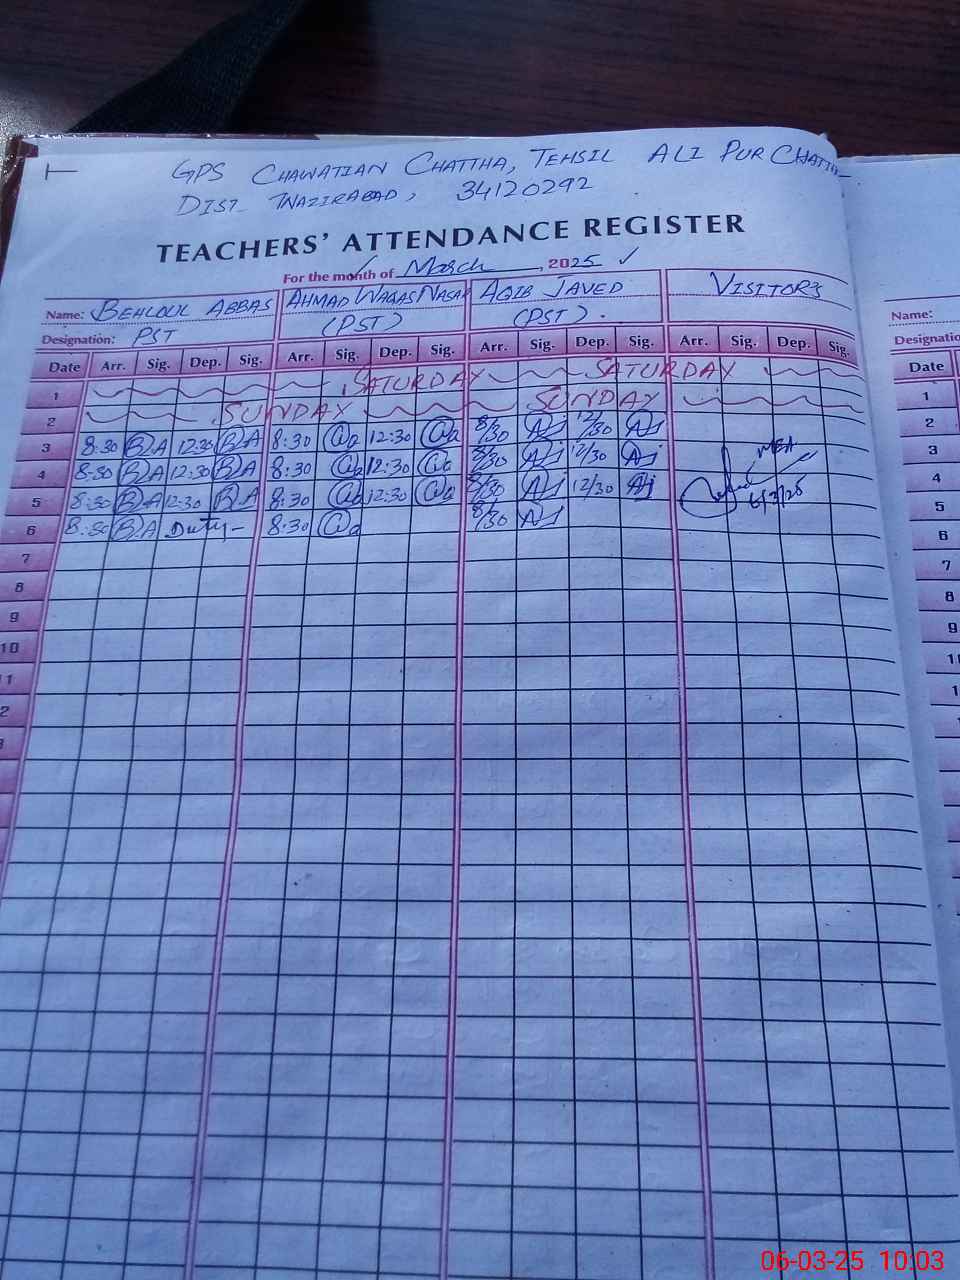 GPS CHAWATIAN CHATTHA, TEHSIL ALI PUR CHATTHA
DIST WAZIRABAD, 34120292
TEACHERS' ATTENDANCE REGISTER
For the month of March, 2025 ✓
Name: BEHLOUL ABBAS AHMAD WAQAS NASAR AQIB JAVED VISITOR'S Name:
Designation: PST (PST) (PST). Designatio
Date Arr. Sig. Dep. Sig. Arr. Sig. Dep. Sig. Arr. Sig. Dep. Sig. Arr. Sig. Dep. Sig. Date
1 SATURDAY SATURDAY 1
2 SUNDAY SUNDAY 2
3 8:30 B.A 12:30 B.A 8:30 12:30 8/30 AJ 12/30 AJ 3
4 8:30 B.A 12:30 B.A 8:30 12:30 8/30 AJ 12/30 AJ MEA 4
5 8:30 B.A 12:30 B.A 8:30 12:30 8/30 AJ 12/30 AJ 6/3/25 5
6 8:30 B.A Duty- 8:30 8/30 AJ 6
7 7
8 8
9 9
10
06-03-25 10:03